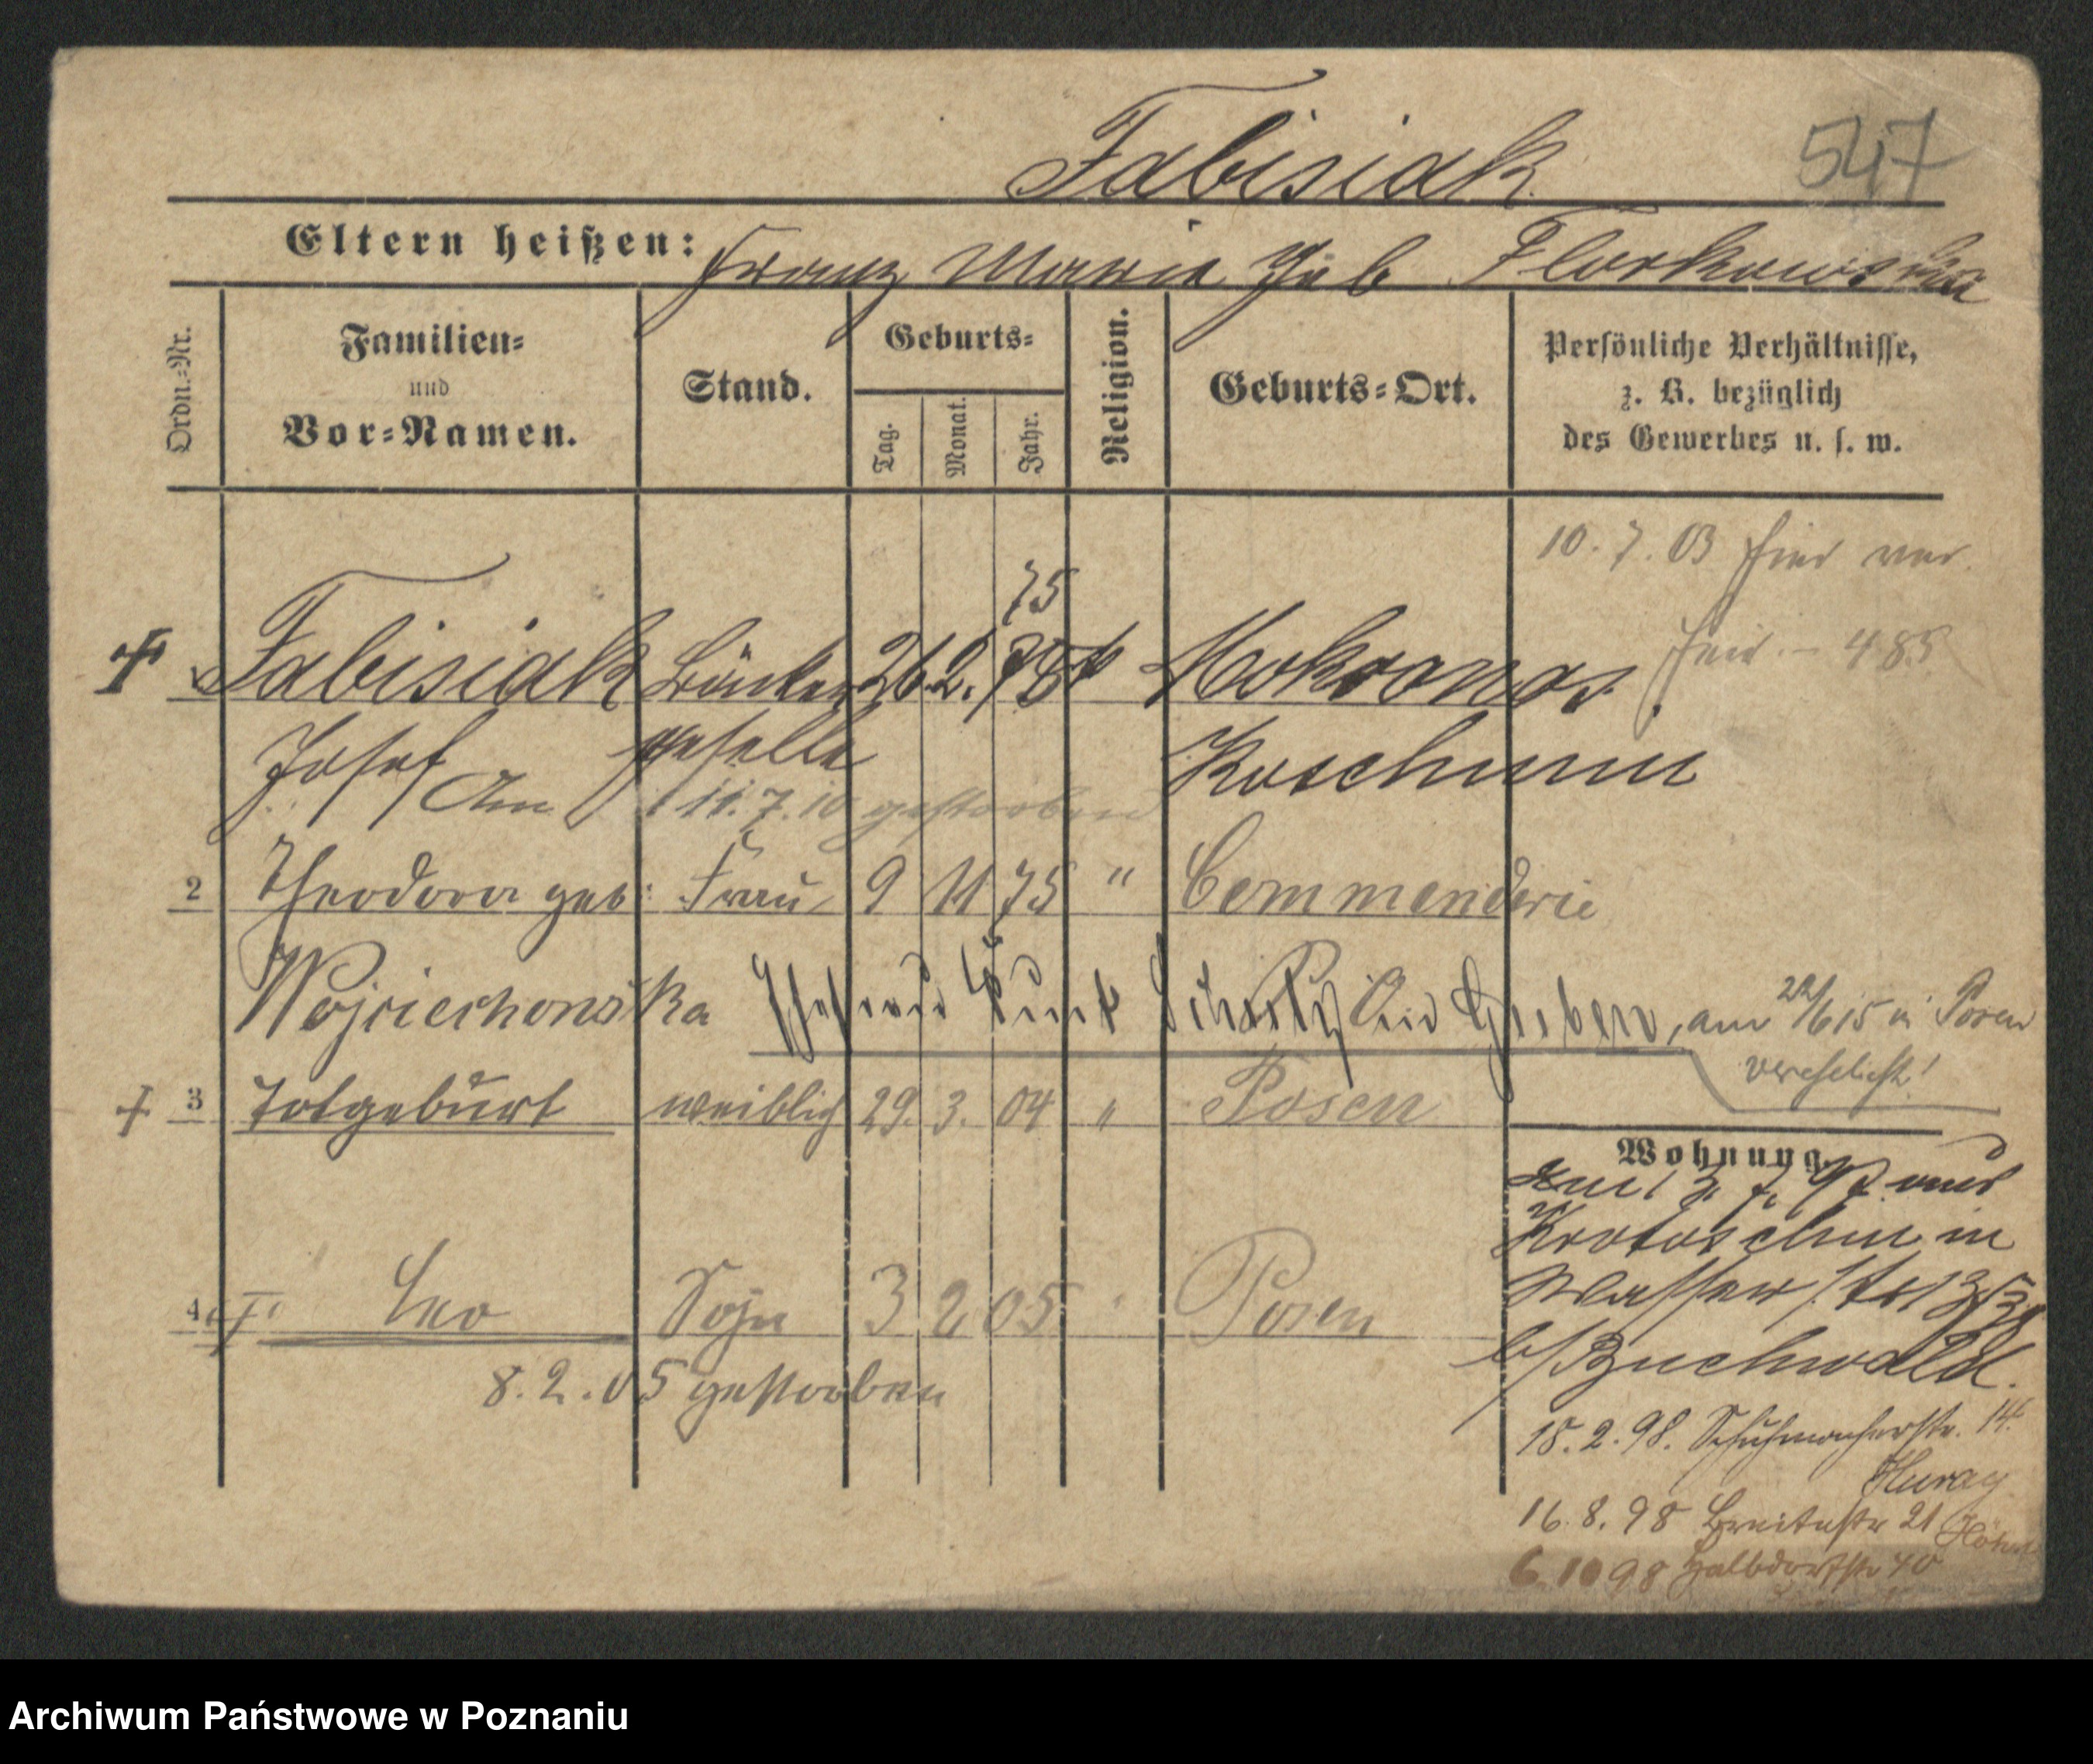 Fabisiak
547
Eltern heißen: Franz Marie geb Florkowska
Ordn.-Nr.
Familien-
und
Vor-Namen.
Stand.
Geburts-
Tag.
Monat.
Jahr.
Religion.
Geburts-Ort.
Persönliche Verhältnisse,
z. B. bezüglich
des Gewerbes u. s. w.
10. 7. 03
75
Fabisiak Bäcker 26. 2. k Mokronos
Josef geselle Koschmin
Am 11. 7. 10 gestorben
2 Theodora geb: Frau 9 11 75 " Commenderie
Wojciechowska
Guben, am 22/6 15 in Posen
verehelicht!
3 Totgeburt weiblich 29. 3. 04 " Posen
Wohnung.
aus
Krotoschin in
Wasserstr
b/Buchwald.
4 Leo Sohn 3 2 05 Posen
8. 2. 05 gestorben
15. 2. 98. Schuhmacherstr. 14.
16. 8. 98 Breitestr 21
6 10 98 Halbdorfstr 40
Archiwum Państwowe w Poznaniu